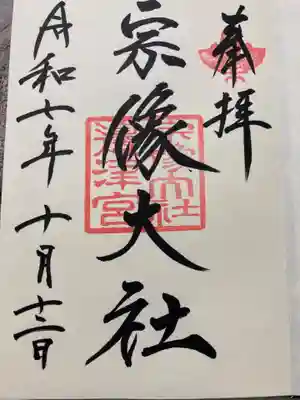 奉拝
宗像大社
宗像大社
津宮
令和七年十月十二日